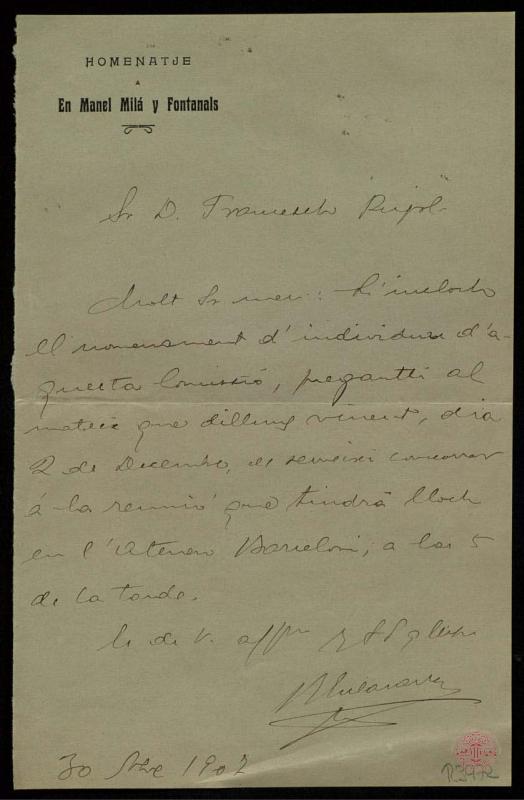 HOMENATJE
A
En Manel Milá y Fontanals
Sr D. Francesch Pujol
Molt Sr meu: L'incloch
el nomenament d'individuu d'a-
questa Comissió, pregantli al
mateix que dilluns vinent, dia
2 de Decembre, se serveixi concorrer
á la reunió que tindrá lloch
en l'Ateneu Barceloni, a las 5
de la tarde.
de V. affm
30 Nbre 1907
R.3972